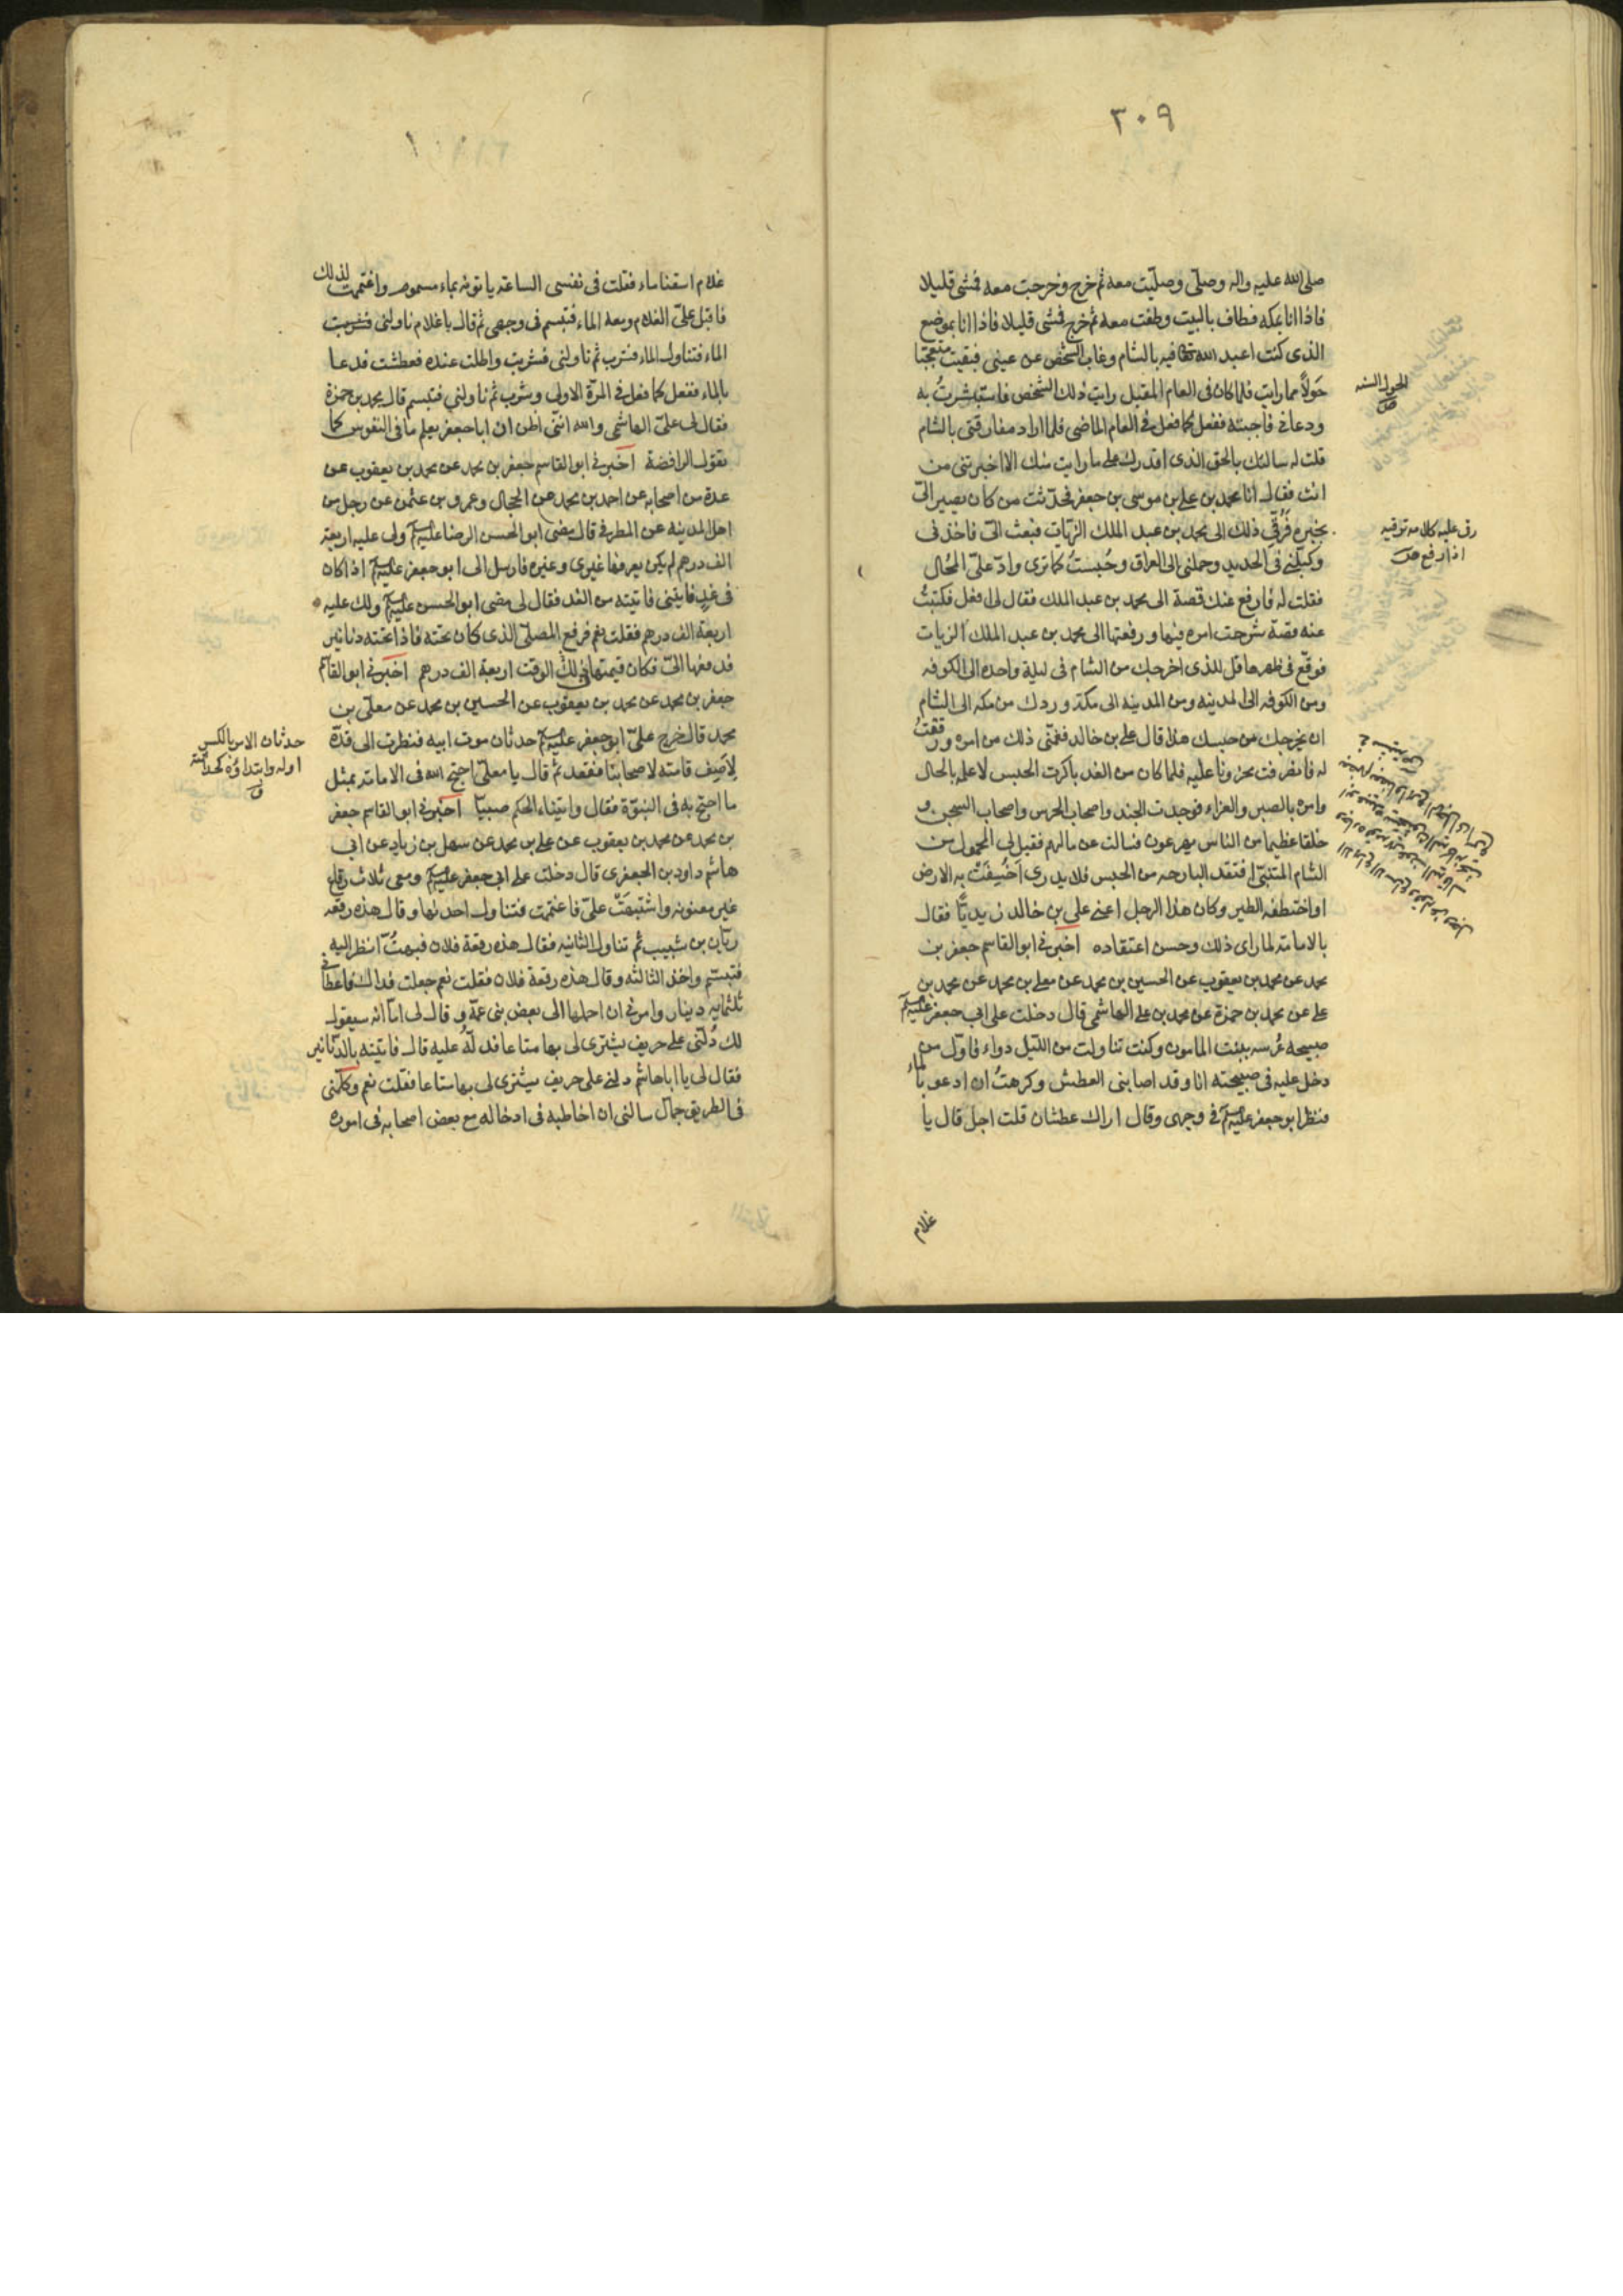 ٣٠٩
صلى الله عليه واله وصلى وصليت معه ثم خرج وخرجت معه فمشى قليلا
فاذا انا بمكه فطاف بالبيت وطفت معه ثم خرج فمشى قليلا فاذا انا بموضع
الذى كنت اعبد الله تعالى فيه بالشام وغاب الشخص عن عينى فبقيت متعجبا
حولا مما رايت فلما كان فى العام المقبل رايت ذلك الشخص فاستبشرت به
ودعانى فاجبته ففعل كما فعل فى العام الماضى فلما اراد مفارقتى بالشام
قلت له سالتك بالحق الذى اقدرك على ما رايت منك الا اخبرتنى من
انت فقال انا محمد بن على بن موسى بن جعفر فحدثت من كان يصير الىّ
بخبره فرقى ذلك الى محمد بن عبد الملك الزيات فبعث الىّ فاخذنى
وكبلنى فى الحديد وحملنى الى العراق وحُبستُ كما ترى وادّعى علىّ المُحال
فقلت له فارفع عنك قصة الى محمد بن عبد الملك فقال لى افعل فكتبتُ
عنه قصة شرحت امره فيها ورفعتها الى محمد بن عبد الملك الزيات
فوقع فى ظهرها قل للذى اخرجك من الشام فى ليلة واحده الى الكوفه
ومن الكوفه الى المدينه ومن المدينه الى مكة وردك من مكه الى الشام
ان يخرجك من حبسك هذا قال على بن خالد فغمّنى ذلك من امره ورققتُ
له فانصرفت محزونا عليه فلما كان من الغد باكرت الحبس لاعلمه بالحال
وامره بالصبر والعزاء فوجدت الجند واصحاب الحرس واصحاب السجن و
خلقا عظيما من الناس يهرعون فسالت عن حالهم فقيل لى المحمول من
الشام المتنبّى افتقد البارحه من الحبس فلا يدرى اخُسِفَتْ به الارض
او اختطفه الطير وكان هذا الرجل اعنى على بن خالد زيديًّا فقال
بالامامة لما راى ذلك وحسن اعتقاده اخبرنى ابو القاسم جعفر بن
محمد عن محمد بن يعقوب عن الحسين بن محمد عن معلى بن محمد عن محمد بن
على عن محمد بن حمزة عن محمد بن على الهاشمى قال دخلت على ابى جعفر عليه السلم
صبيحه عُرسه ببنت المامون وكنت تناولت من الليل دواء فاوّل من
دخل عليه فى صبيحته انا وقد اصابنى العطش وكرهتُ ان ادعو بالماء
فنظر ابو جعفر عليه السلم فى وجهى وقال اراك عطشان قلت اجل قال يا
غلام
الحول السنه
رقى عليه كلامه ترقيه
اذا رفع
غلام اسقنا ماء فقلت فى نفسى الساعة ياتونه بماء مسموم واغتممت لذلك
فاقبل علىّ الغلام ومعه الماء فتبسم فى وجهى ثم قال يا غلام ناولنى فشربت
الماء فتناول الماء فشرب ثم ناولنى فشربت واطلت عنده فعطشت فدعا
بالماء ففعل كما فعل فى المرّة الاولى وشرب ثم ناولنى فتبسم قال محمد بن حمزة
فقال لى علىّ الهاشمى والله اننى اظن ان ابا جعفر يعلم ما فى النفوس كما
تقول الرافضة اخبرنى ابو القاسم جعفر بن محمد عن محمد بن يعقوب عن
عدة من اصحابه عن احمد بن محمد عن الحجال وعمرو بن عثمن عن رجل من
اهل المدينه عن المطرفى قال مضى ابو الحسن الرضا عليه السلم ولى عليه اربعة
الف درهم لم يكن يعرفها غيرى وغيره فارسل الى ابو جعفر عليه السلم اذا كان
فى غدٍ فايتنى فاتيته من الغد فقال لى مضى ابو الحسن عليه السلم ولك عليه
اربعة الف درهم فقلت نعم فرفع المصلى الذى كان تحته فاذا تحته دنانير
فدفعها الىّ فكان قيمتها فى ذلك الوقت اربعة الف درهم اخبرنى ابو القاسم
جعفر بن محمد عن محمد بن يعقوب عن الحسين بن محمد عن معلى بن
محمد قال خرج علىّ ابو جعفر عليه السلم حدثان موت ابيه فنظرت الى قدّه
لِاَصِف قامته لاصحابنا فقعد ثم قال يا معلى احتج الله فى الامامة بمثل
ما احتج به فى النبوّة فقال واتيناه الحكم صبيا اخبرنى ابو القاسم جعفر
بن محمد عن محمد بن يعقوب عن على بن محمد عن سهل بن زياد عن ابى
هاشم داود بن الجعفرى قال دخلت على ابى جعفر عليه السلم ومعى ثلاث رقاع
غير معنونه واشتبهَتْ علىّ فاغتممت فتناول احدها وقال هذه رقعه
ريّان بن شبيب ثم تناول الثانيه فقال هذه رقعة فلان فبهتُّ انظر اليه
فتبسّم واخذ الثالثه وقال هذه رقعة فلان فقلت نعم جعلت فداك فاعطانى
ثلثمايه دينار وامرنى ان احملها الى بعض بنى عمّه وقال لى اما انه سيقول
لك دُلّنى على حريف يشترى لى بها متاعا فدلّه عليه قال فاتيته بالدّنانير
فقال لى يا ابا هاشم دلنى على حريف يشترى لى بها متاعا فقلت نعم وكلّمنى
فى الطريق جمّال سالنى ان اخاطبه فى ادخاله مع بعض اصحابه فى اموره
حدثان الامر بالكسر
اوله وابتداؤه كحداثته
ق